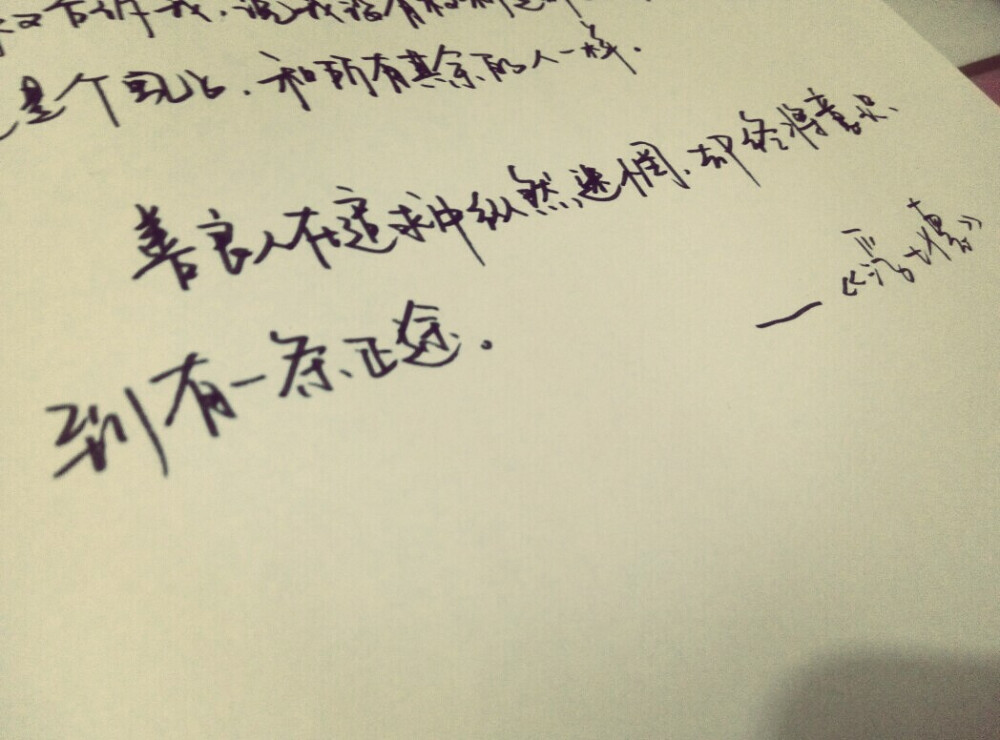 又告诉我,说我该有
是个玩比.和所有其余的人一样.
善良人在追求中纵然迷惘.却终将意识
到有一条正途。
——《浮士德》